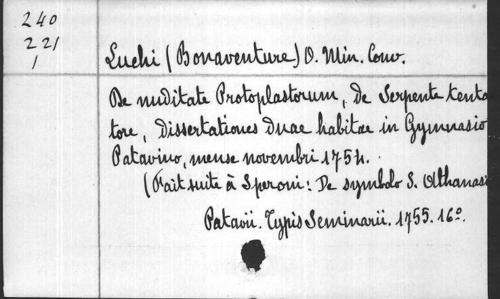 240
221
1
Luchi (Bonaventure) O. Min. Conv.
De nuditate Protoplastorum, de Serpente tenta
tore, Dissertationes duae habitae in Gymnasio
Patavino, mense novembri 1754.
(Fait suite à Speroni: De symbolo S. Athanasi
Patavii. Typis Seminarii. 1755. 16º.